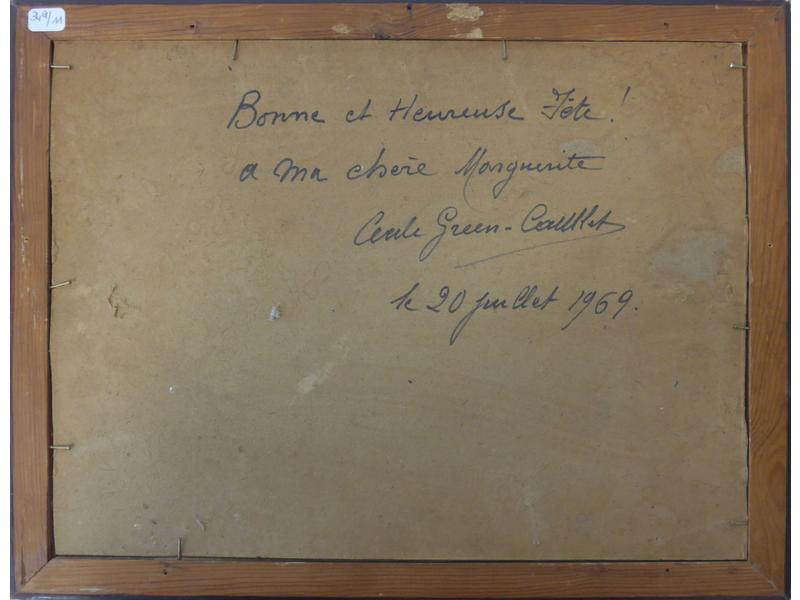 349/11
Bonne et Heureuse Fête!
a ma chère Marguerite
Cecile Green-Cauillet
le 20 juillet 1969.